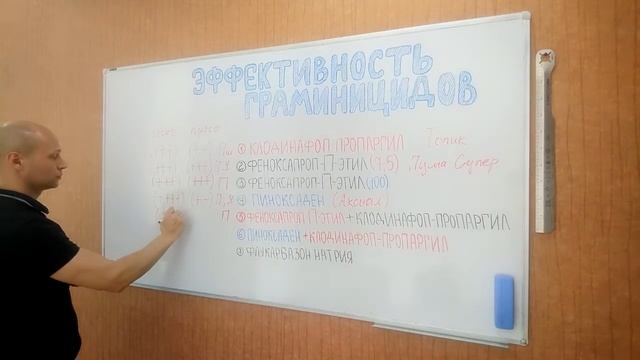 ЭФФЕКТИВНОСТЬ
ГРАМИНИЦИДОВ
просо
(+++) П,Ш ① КЛОДИНАФОП-ПРОПАРГИЛ Топик
② ФЕНОКСАПРОП-П-ЭТИЛ (7,5) Пума Супер
(+++) (+++) П ③ ФЕНОКСАПРОП-П-ЭТИЛ (100)
④ ПИНОКСАДЕН (Аксиал)
П ⑤ ФЕНОКСАПРОП П-ЭТИЛ + КЛОДИНАФОП-ПРОПАРГИЛ
⑥ ПИНОКСАДЕН + КЛОДИНАФОП-ПРОПАРГИЛ
⑦ ФЛУКАРБАЗОН НАТРИЯ